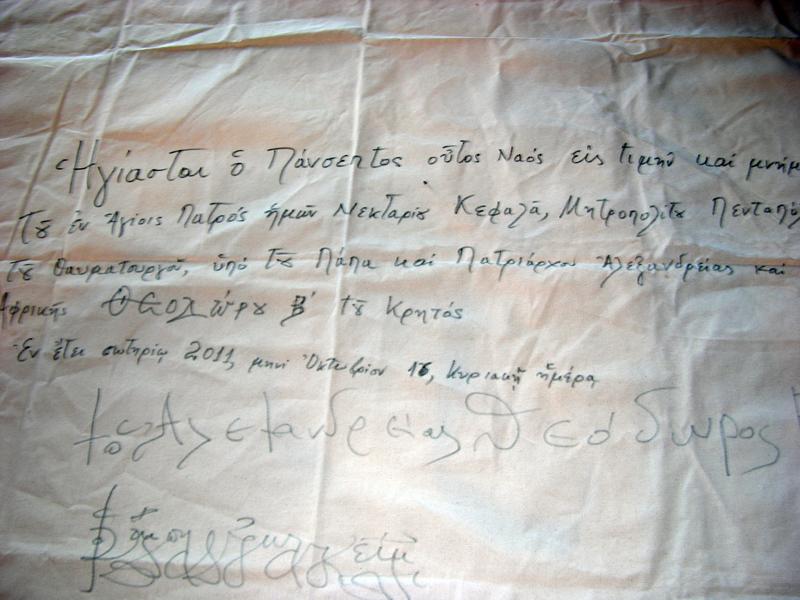 Ἡγίασται ὁ Πάνσεπτος οὗτος Ναός εἰς τιμήν καί μνήμ
τȣ͂ ἐν Ἁγίοις Πατρός ἡμῶν Νεκταρίȣ Κεφαλᾶ, Μητροπολίτȣ Πενταπόλ
τȣ͂ Θαυματουργοῦ, ὑπό τȣ͂ Πάπα καί Πατριάρχου Ἀλεξανδρείας καί
Ἀφρικῆς ΘΕΟΔώρȣ Β' τȣ͂ Κρητός
Ἐν ἔτει σωτηρίῳ 2011, μηνί Ὀκτωβρίου 16, Κυριακῇ ἡμέρᾳ
Ἀλεξανδρείας Θεόδωρος